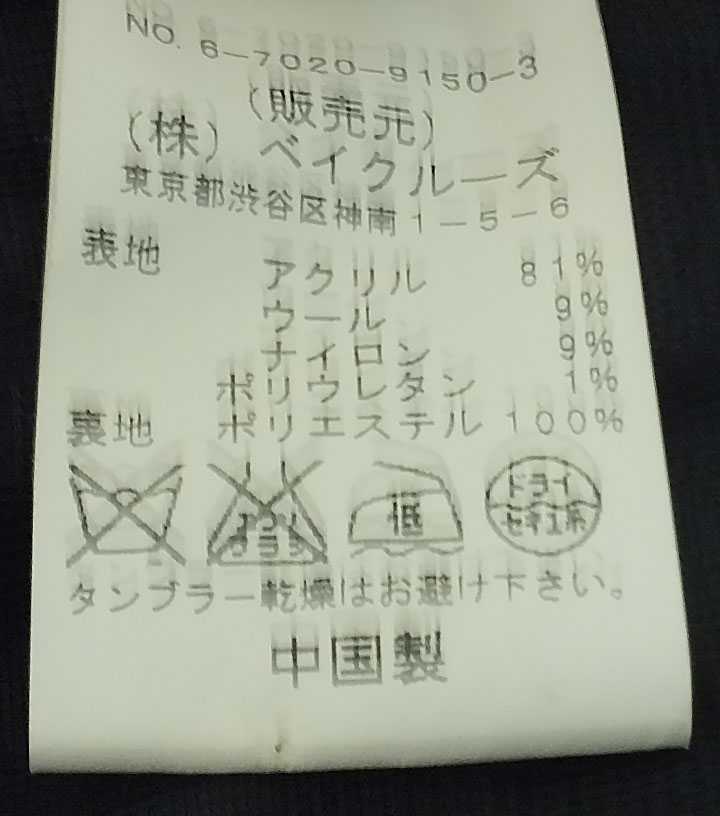 NO. 6-7020-9150-3
(販売元)
(株) ベイクルーズ
東京都渋谷区神南1-5-6
表地 アクリル 81%
ウール 9%
ナイロン 9%
ポリウレタン 1%
裏地 ポリエステル 100%
エンソ サラシ 低 ドライ セキユ系
タンブラー乾燥はお避け下さい。
中国製